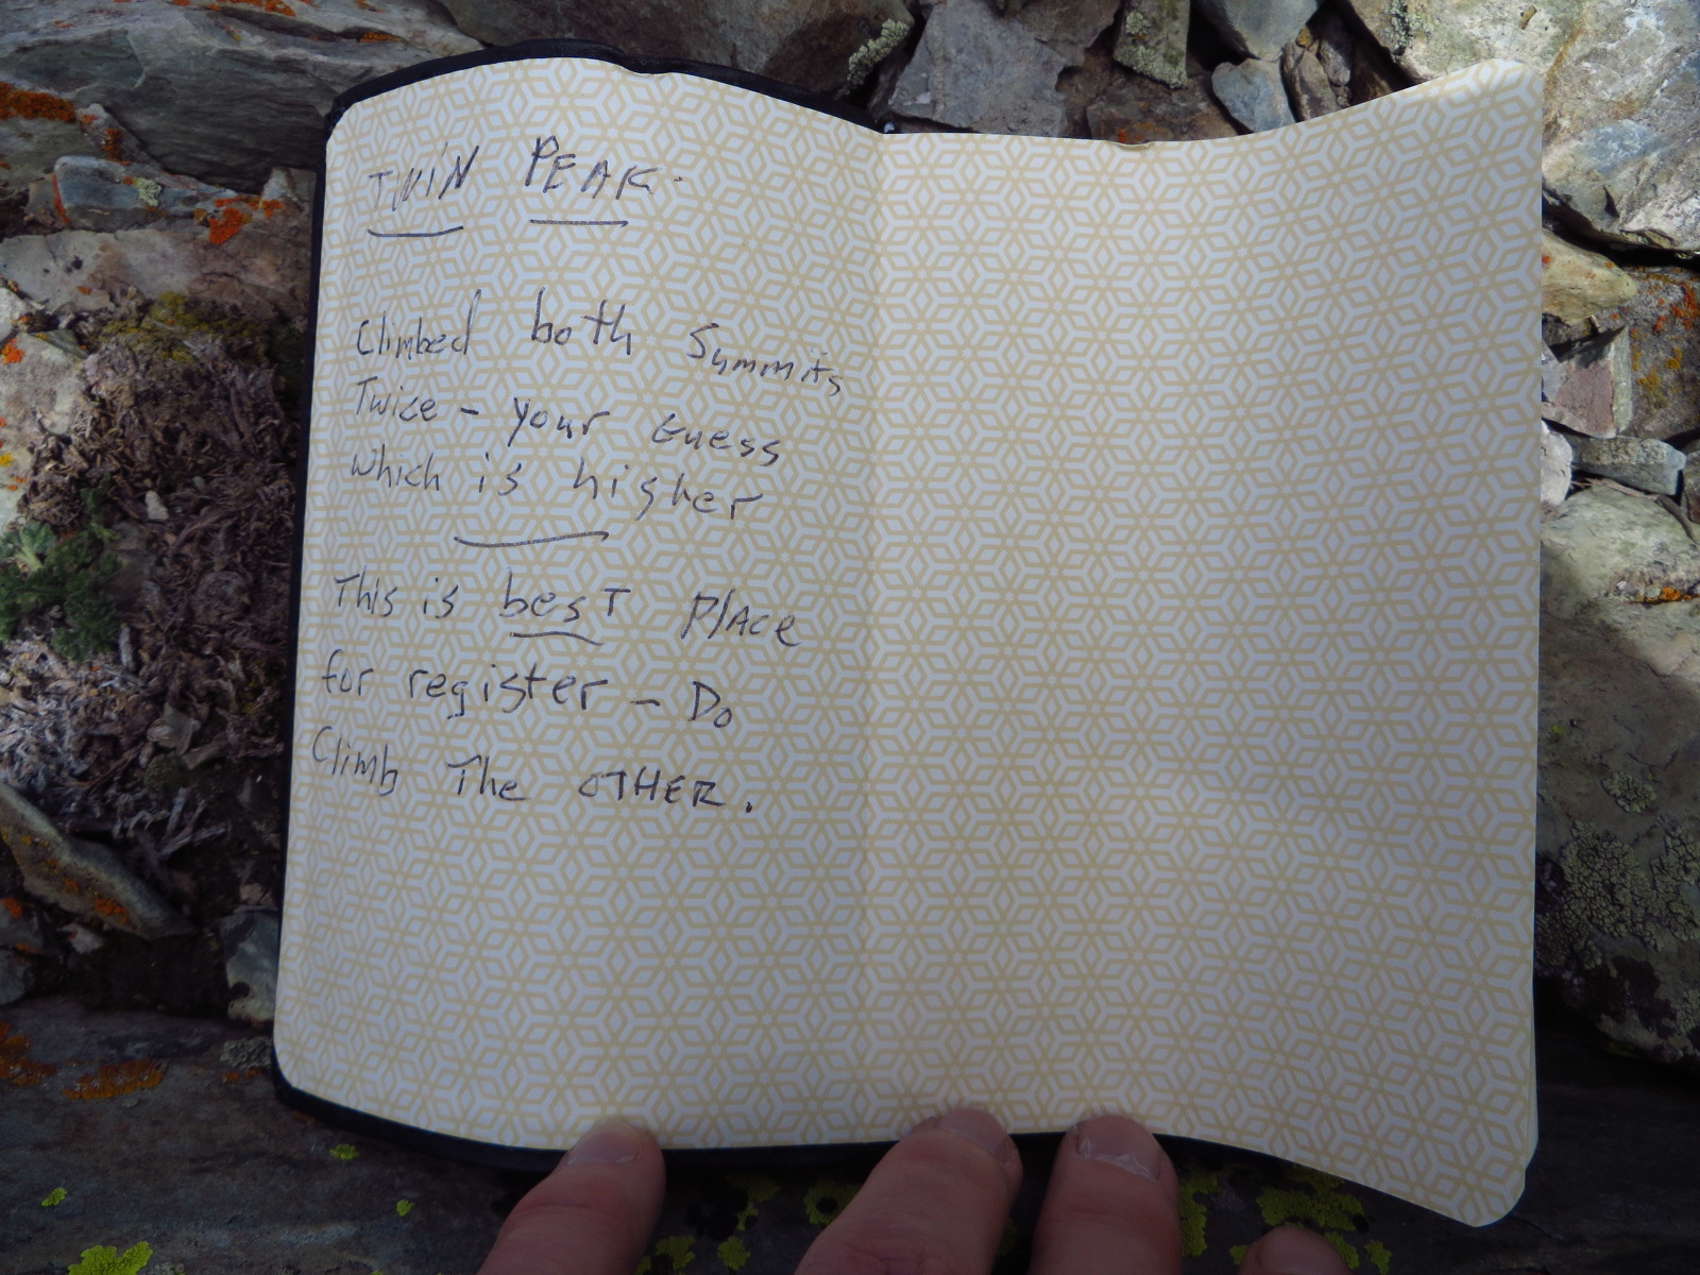 TWIN PEAK.
Climbed both Summits
Twice - your Guess
which is higher
This is besT PlAce
for register - Do
Climb The OTHER.